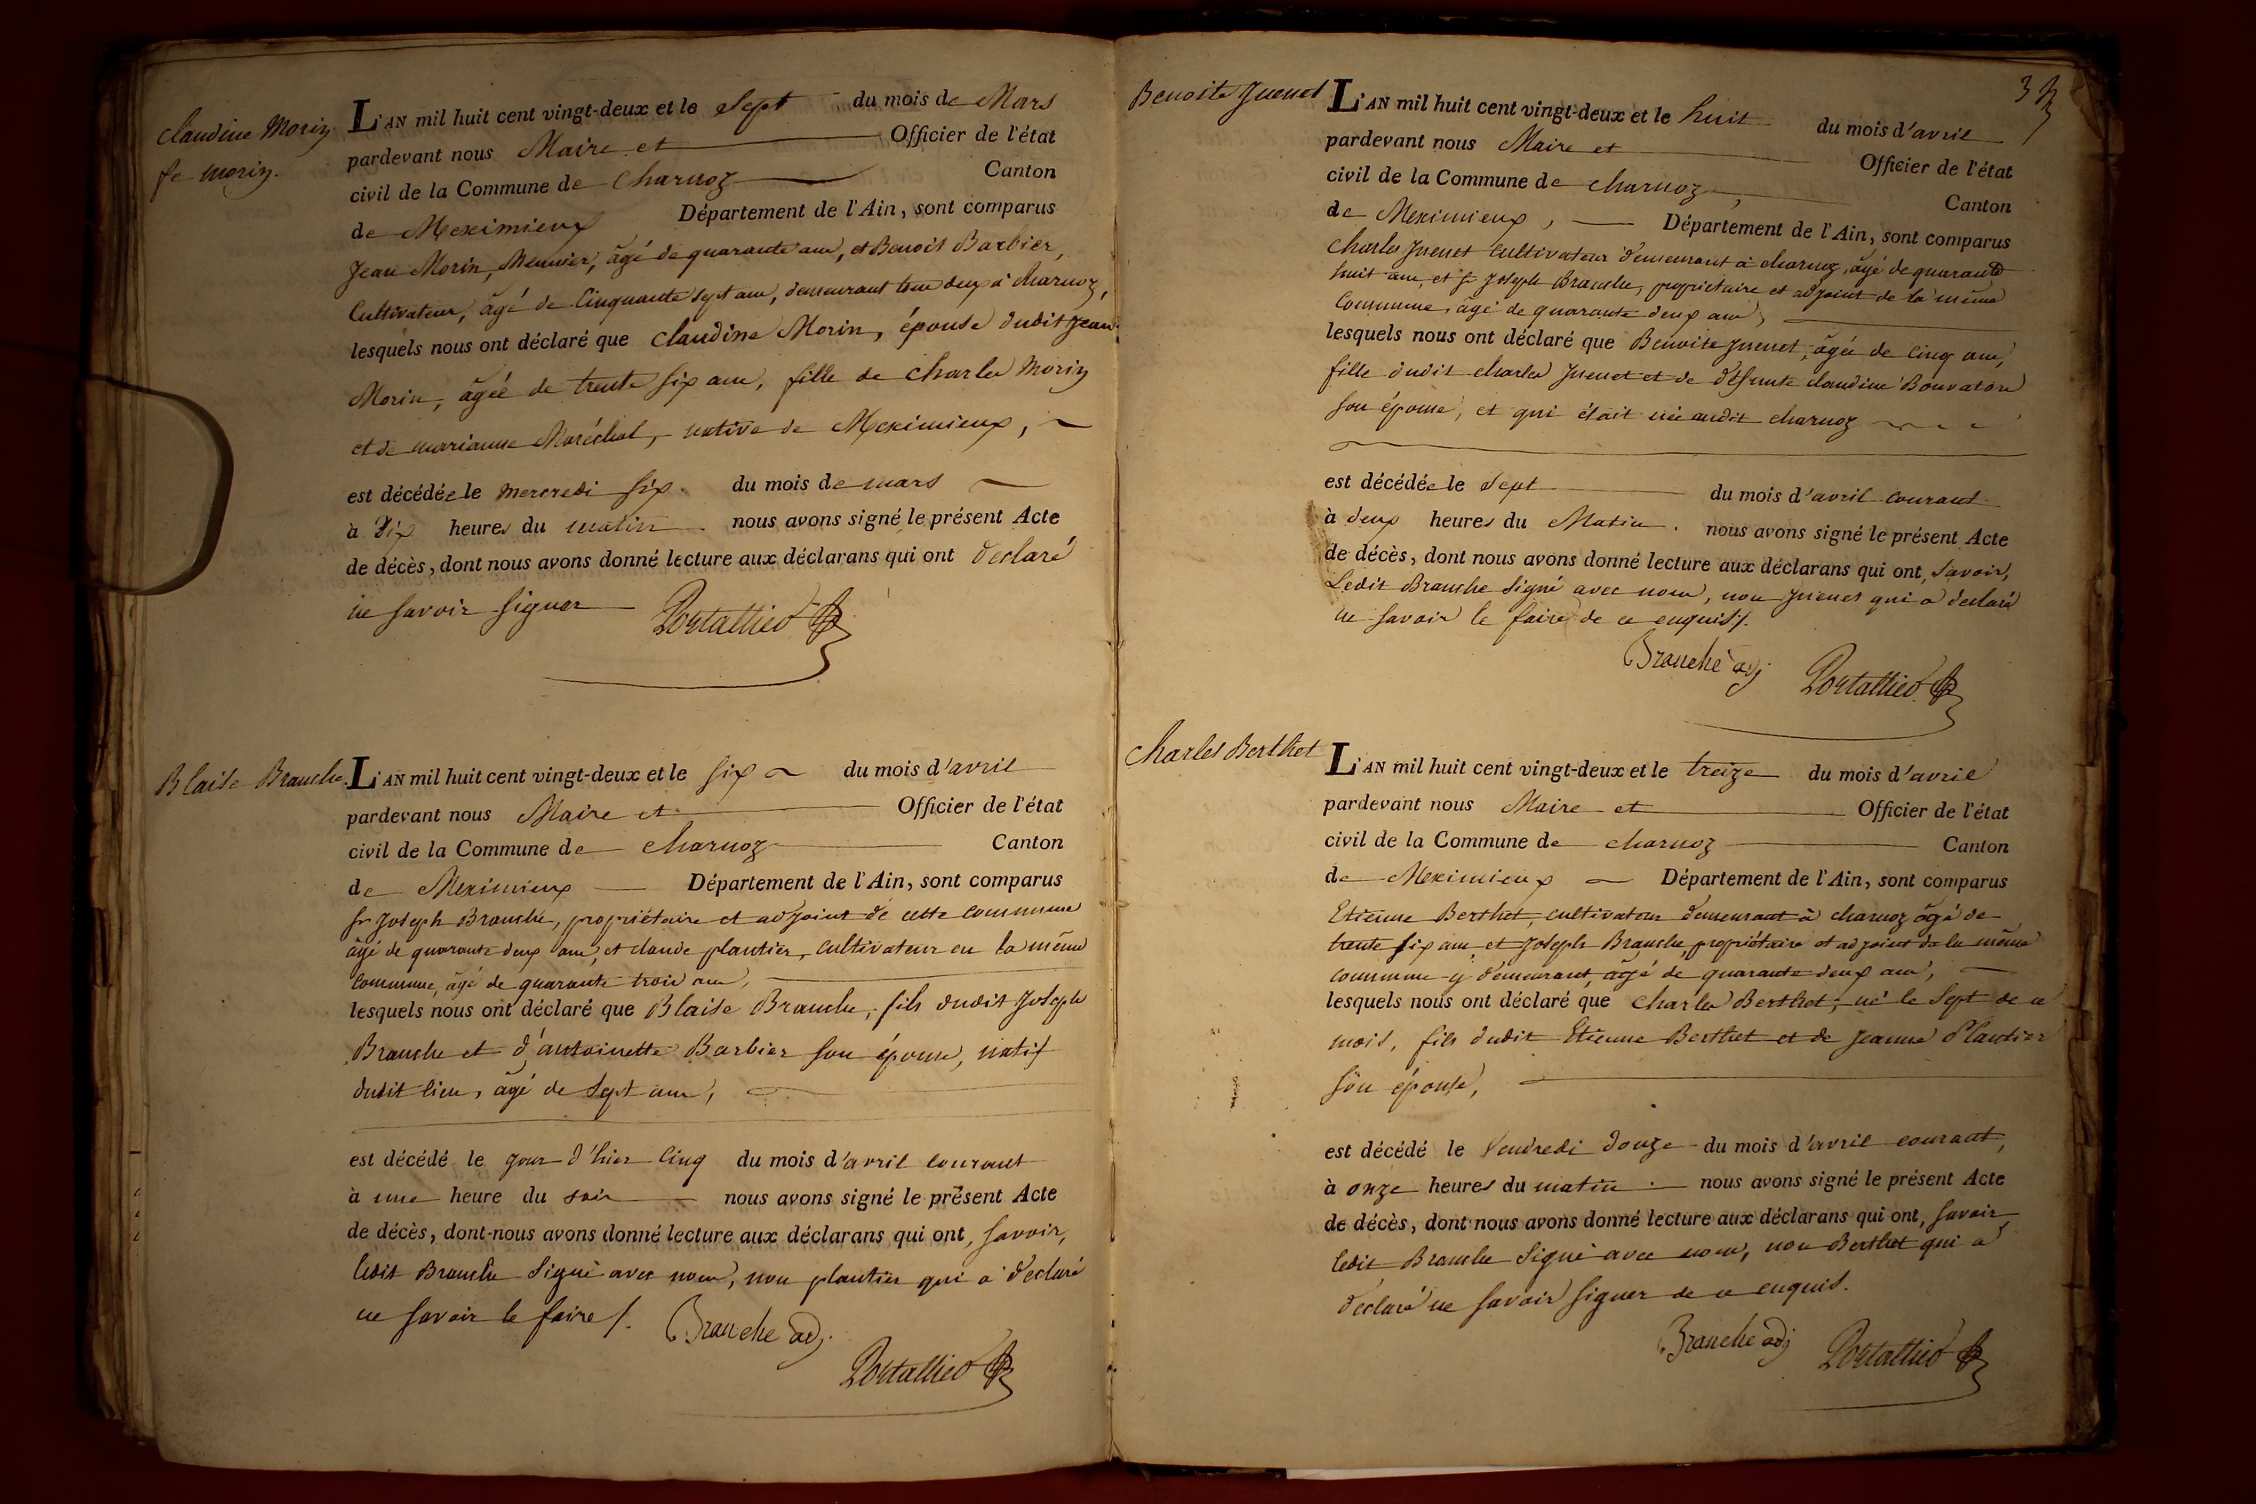 Claudine Morin
fe morin.
L'AN mil huit cent vingt-deux et le Sept du mois de Mars
pardevant nous Maire et Officier de l'état
civil de la Commune de Charnoz Canton
de Meximieux Département de l'Ain, sont comparus
Jean Morin, Meunier, âgé de quarante ans, et Benoit Barbier,
Cultivateur, âgé de Cinquante sept ans, demeurant tous deux à Charnoz,
lesquels nous ont déclaré que Claudine Morin, épouse dudit Jean
Morin, âgée de trente six ans, fille de Charles Morin
et de marianne Maréchal, native de Meximieux,
est décédée le mercredi six du mois de mars
à dix heures du matin. nous avons signé le présent Acte
de décès, dont nous avons donné lecture aux déclarans qui ont déclaré
ne savoir signer Portallier
Blaise Branche.
L'AN mil huit cent vingt-deux et le six du mois d'avril
pardevant nous Maire et Officier de l'état
civil de la Commune de charnoz Canton
de Meximieux Département de l'Ain, sont comparus
sr Joseph Branche, propriétaire et adjoint de cette commune
âgé de quarante deux ans, et claude plantier, cultivateur en la même
commune, âgé de quarante trois ans,
lesquels nous ont déclaré que Blaise Branche, fils dudit Joseph
Branche et d'antoinette Barbier son épouse, natif
dudit lieu, âgé de sept ans,
est décédé le jour d'hier cinq du mois d'avril courant
à une heure du soir nous avons signé le présent Acte
de décès, dont nous avons donné lecture aux déclarans qui ont, savoir,
ledit Branche Signé avec nous, non plantier qui a déclaré
ne savoir le faire /. Branche adj.
Portallier
3
Benoite Juenet
L'AN mil huit cent vingt-deux et le huit du mois d'avril
pardevant nous Maire et Officier de l'état
civil de la Commune de charnoz, Canton
de Meximieux, Département de l'Ain, sont comparus
Charles Juenet cultivateur demeurant à charnoz, âgé de quarante
huit ans, et sr Joseph Branche, propriétaire et adjoint de la même
Commune, âgé de quarante deux ans,
lesquels nous ont déclaré que Benoite Juenet, âgée de cinq ans,
fille dudit charles Juenet et de défunte claudine Bouvaton
son épouse, et qui était née audit charnoz
est décédée le Sept du mois d'avril courant
à deux heures du Matin. nous avons signé le présent Acte
de décès, dont nous avons donné lecture aux déclarans qui ont, savoir,
Ledit Branche Signé avec nous, non Juenet qui a déclaré
ne savoir le faire de ce enquis /.
Branche adj Portallier
Charles Berthet
L'AN mil huit cent vingt-deux et le treize du mois d'avril
pardevant nous Maire et Officier de l'état
civil de la Commune de charnoz Canton
de Meximieux Département de l'Ain, sont comparus
Etienne Berthet, cultivateur demeurant à charnoz âgé de
trente six ans, et Joseph Branche, propriétaire et adjoint de la même
commune y demeurant, âgé de quarante deux ans,
lesquels nous ont déclaré que Charles Berthet, né le Sept de ce
mois, fils dudit Etienne Berthet et de Jeanne Plantier
son épouse,
est décédé le Vendredi douze du mois d'avril courant,
à onze heures du matin. nous avons signé le présent Acte
de décès, dont nous avons donné lecture aux déclarans qui ont, savoir
ledit Branche Signé avec nous, non Berthet qui a
déclaré ne savoir signer de ce enquis.
Branche adj Portallier